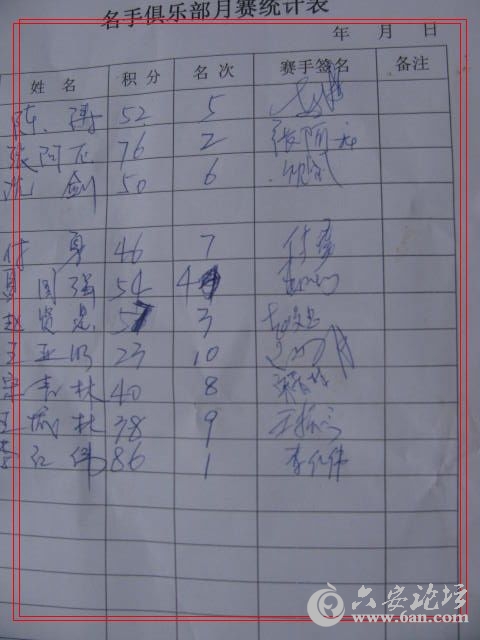 名手俱乐部月赛统计表
年 月 日
姓名 积分 名次 赛手签名 备注
陈 52 5
张阿 76 2 张阿
沈剑 50 6
付勇 46 7 付勇
夏国强 54 4
赵贤忠 57 3
王亚明 23 10
宋春林 40 8
王振林 38 9 王振
李红伟 86 1 李红伟
六安论坛
www.6an.com